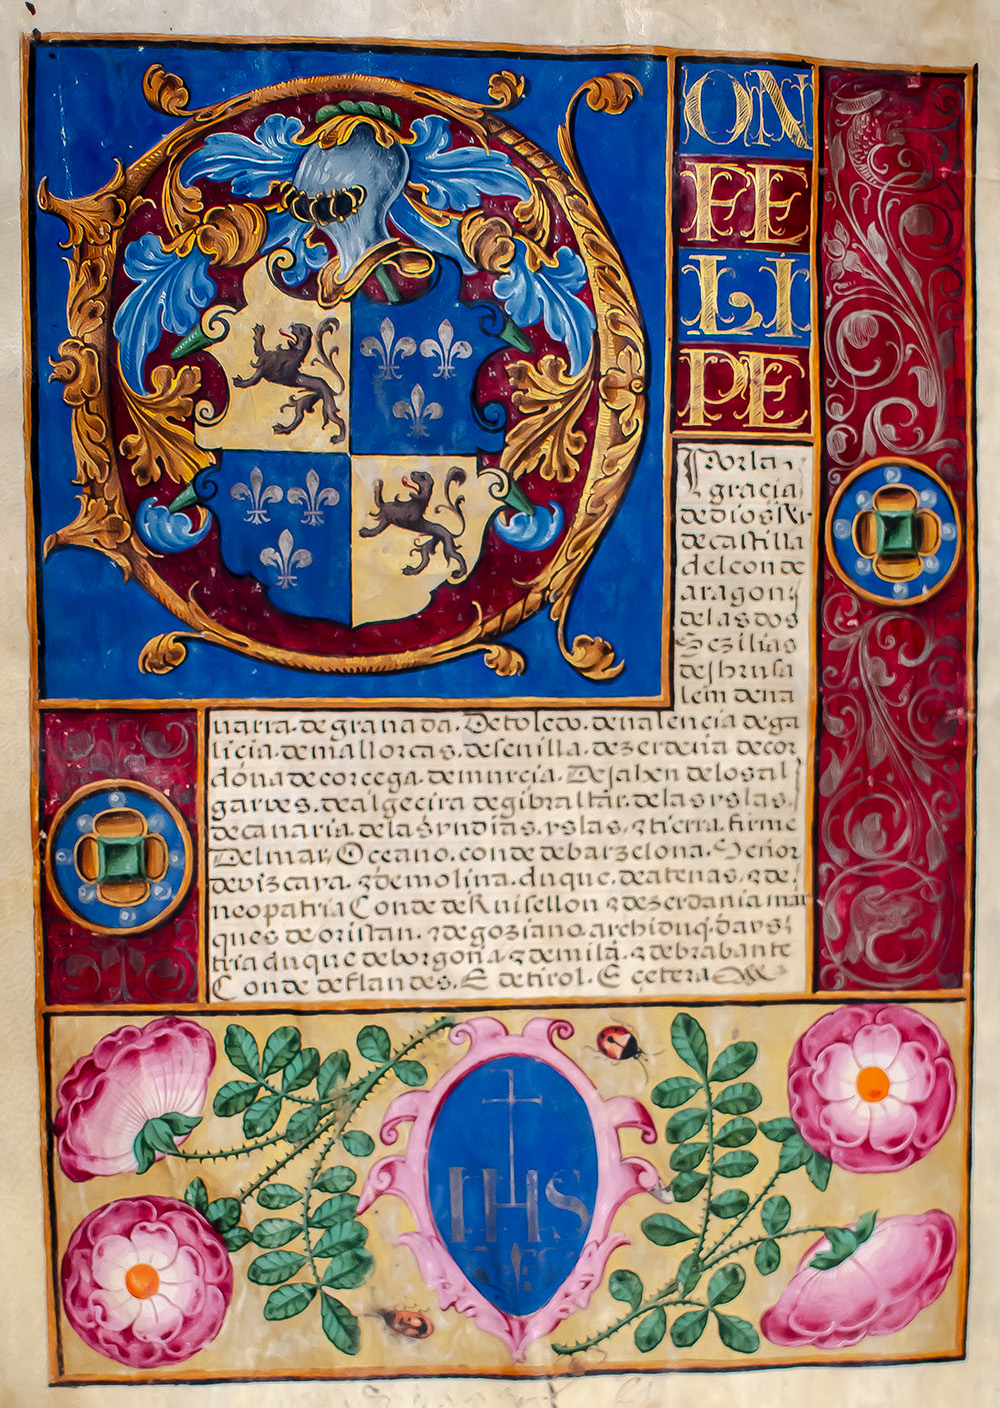 DON
FE
LI
PE
Por la
gracia
de dios Rey
de castilla
de leon de
aragon
de las dos
Sezilias
de Jhrusa
lem de na
uarra. de granada. De toledo. de ualencia de ga
licia. de mallorcas. de seuilla. de zerdeña de cor
doua de corcega. de murcia. De Jahen de los al
garues. de algecira de gibraltar. de las yslas.
de canaria de las yndias. yslas, z tierra. firme
Del mar, Oceano. conde de barzelona. Señor
de vizcaya. z de molina. duque. de atenas, z de
neopatria Conde de Ruisellon z de zerdania mar
ques de oristan. z de goziano. archiduq. d aus
tria duque de borgoña z de milã. z de brabante
Conde de flandes. E de tirol. E çetera
IHS